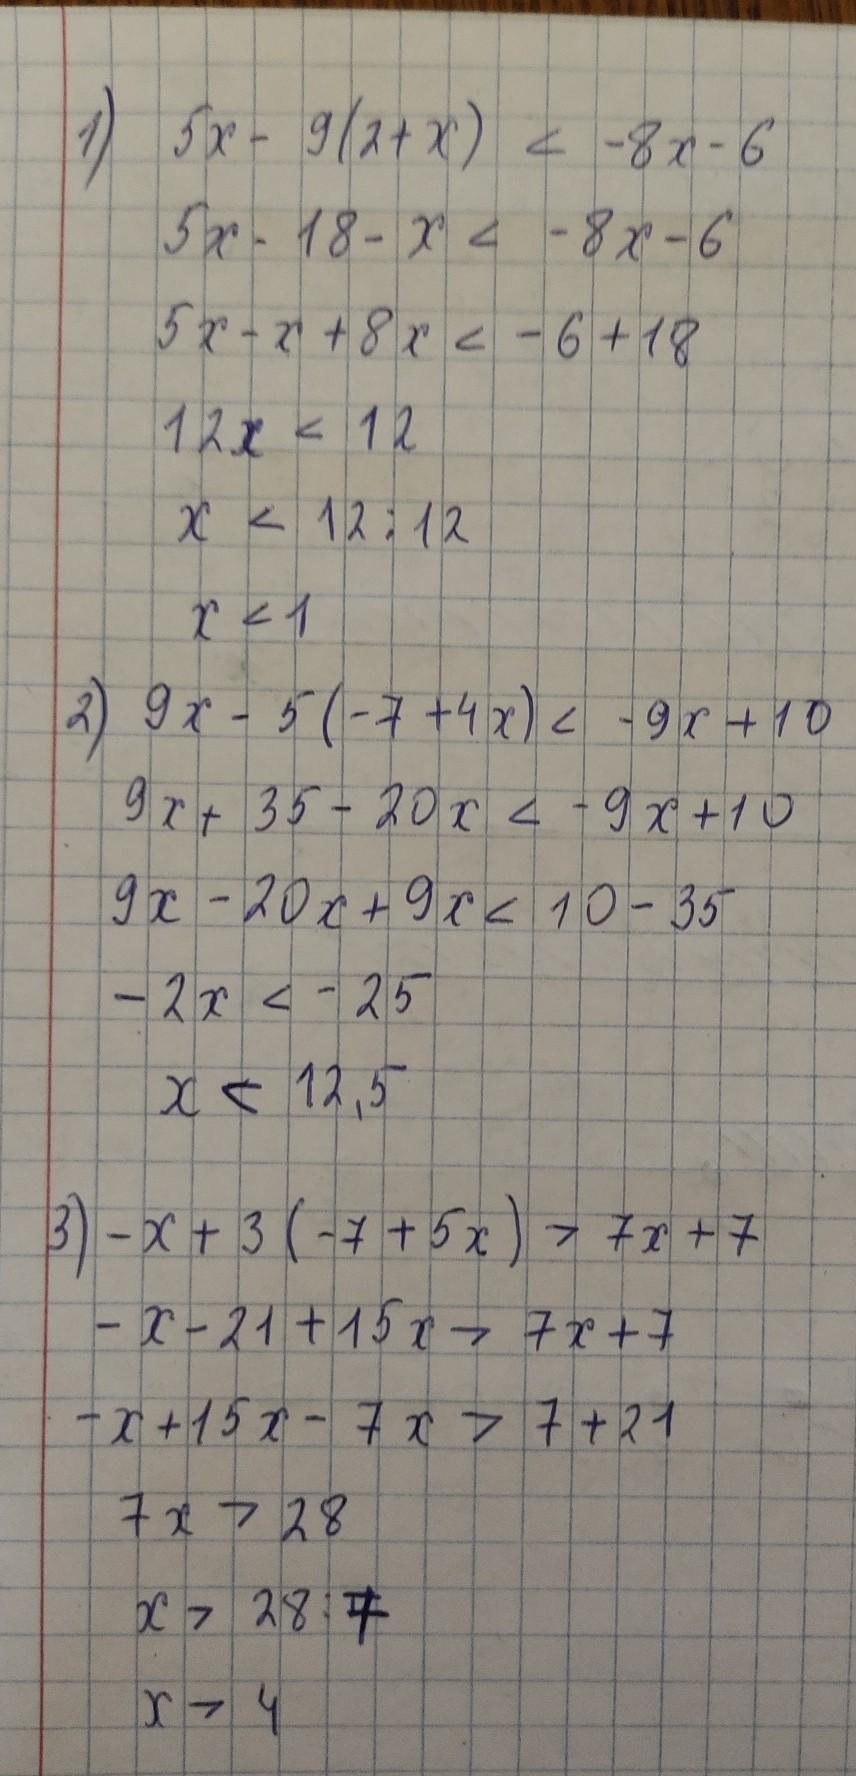 1) 5x - 9(2+x) < -8x-6
5x - 18 - x < -8x-6
5x-x+8x < -6+18
12x < 12
x < 12:12
x < 1
2) 9x - 5(-7+4x) < -9x+10
9x+ 35 - 20x < -9x+10
9x - 20x+9x < 10-35
-2x < -25
x < 12,5
3) -x+3(-7+5x) > 7x+7
-x-21+15x > 7x+7
-x+15x-7x > 7+21
7x > 28
x > 28:7
x > 4